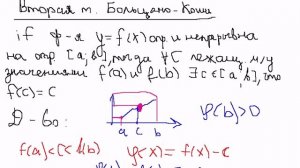 Вторая т. Больцано-Коши
if ф-я y=f(x) опр. и непрерывна
на отр. [a,b], тогда ∀C лежащ. м/у
значениями f(a) и f(b) ∃c∈[a,b], что
f(c)=C
Д-во:
a c b
φ(b)>0
f(a)<C<f(b) φ(x)=f(x)-C